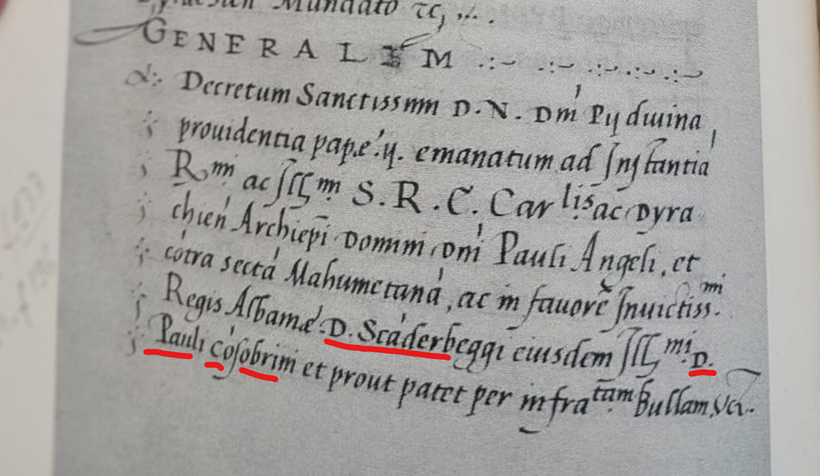 Mundato &c, ...
GENERALEM
Decretum Sanctissimi D. N. Dni Py diuina
prouidentia pape .ij. emanatum ad Instantia
Rmi ac Illmi S. R. C. Carlis ac Dyra
chien Archiepi Domini Dni Pauli Angeli, et
cōtra sectā Mahumetanā, ac in fauorē Inuictissmi
Regis Albaniæ D. Scāderbeggi eiusdem Illmi D.
Pauli cōsobrini et prout patet per infratam Bullam, Vz.